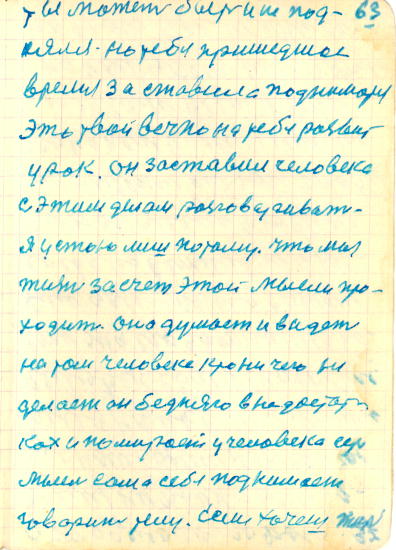 ты может был и не под- 63
нялся. но тебя пришедшое
время заставила подымат
Это твой вечно на тебя развит
урок. он заставил человека
с этим делам разговаривать-
Я устою лиш потому. что моя
жизн за счет этой мысли про-
ходит. она думает и видет
на том человека кто ничего ни
делает он бедняго в недостат
ках и помирает у человека
мысл сама себя подымает
говорит ему. Если хочеш жит